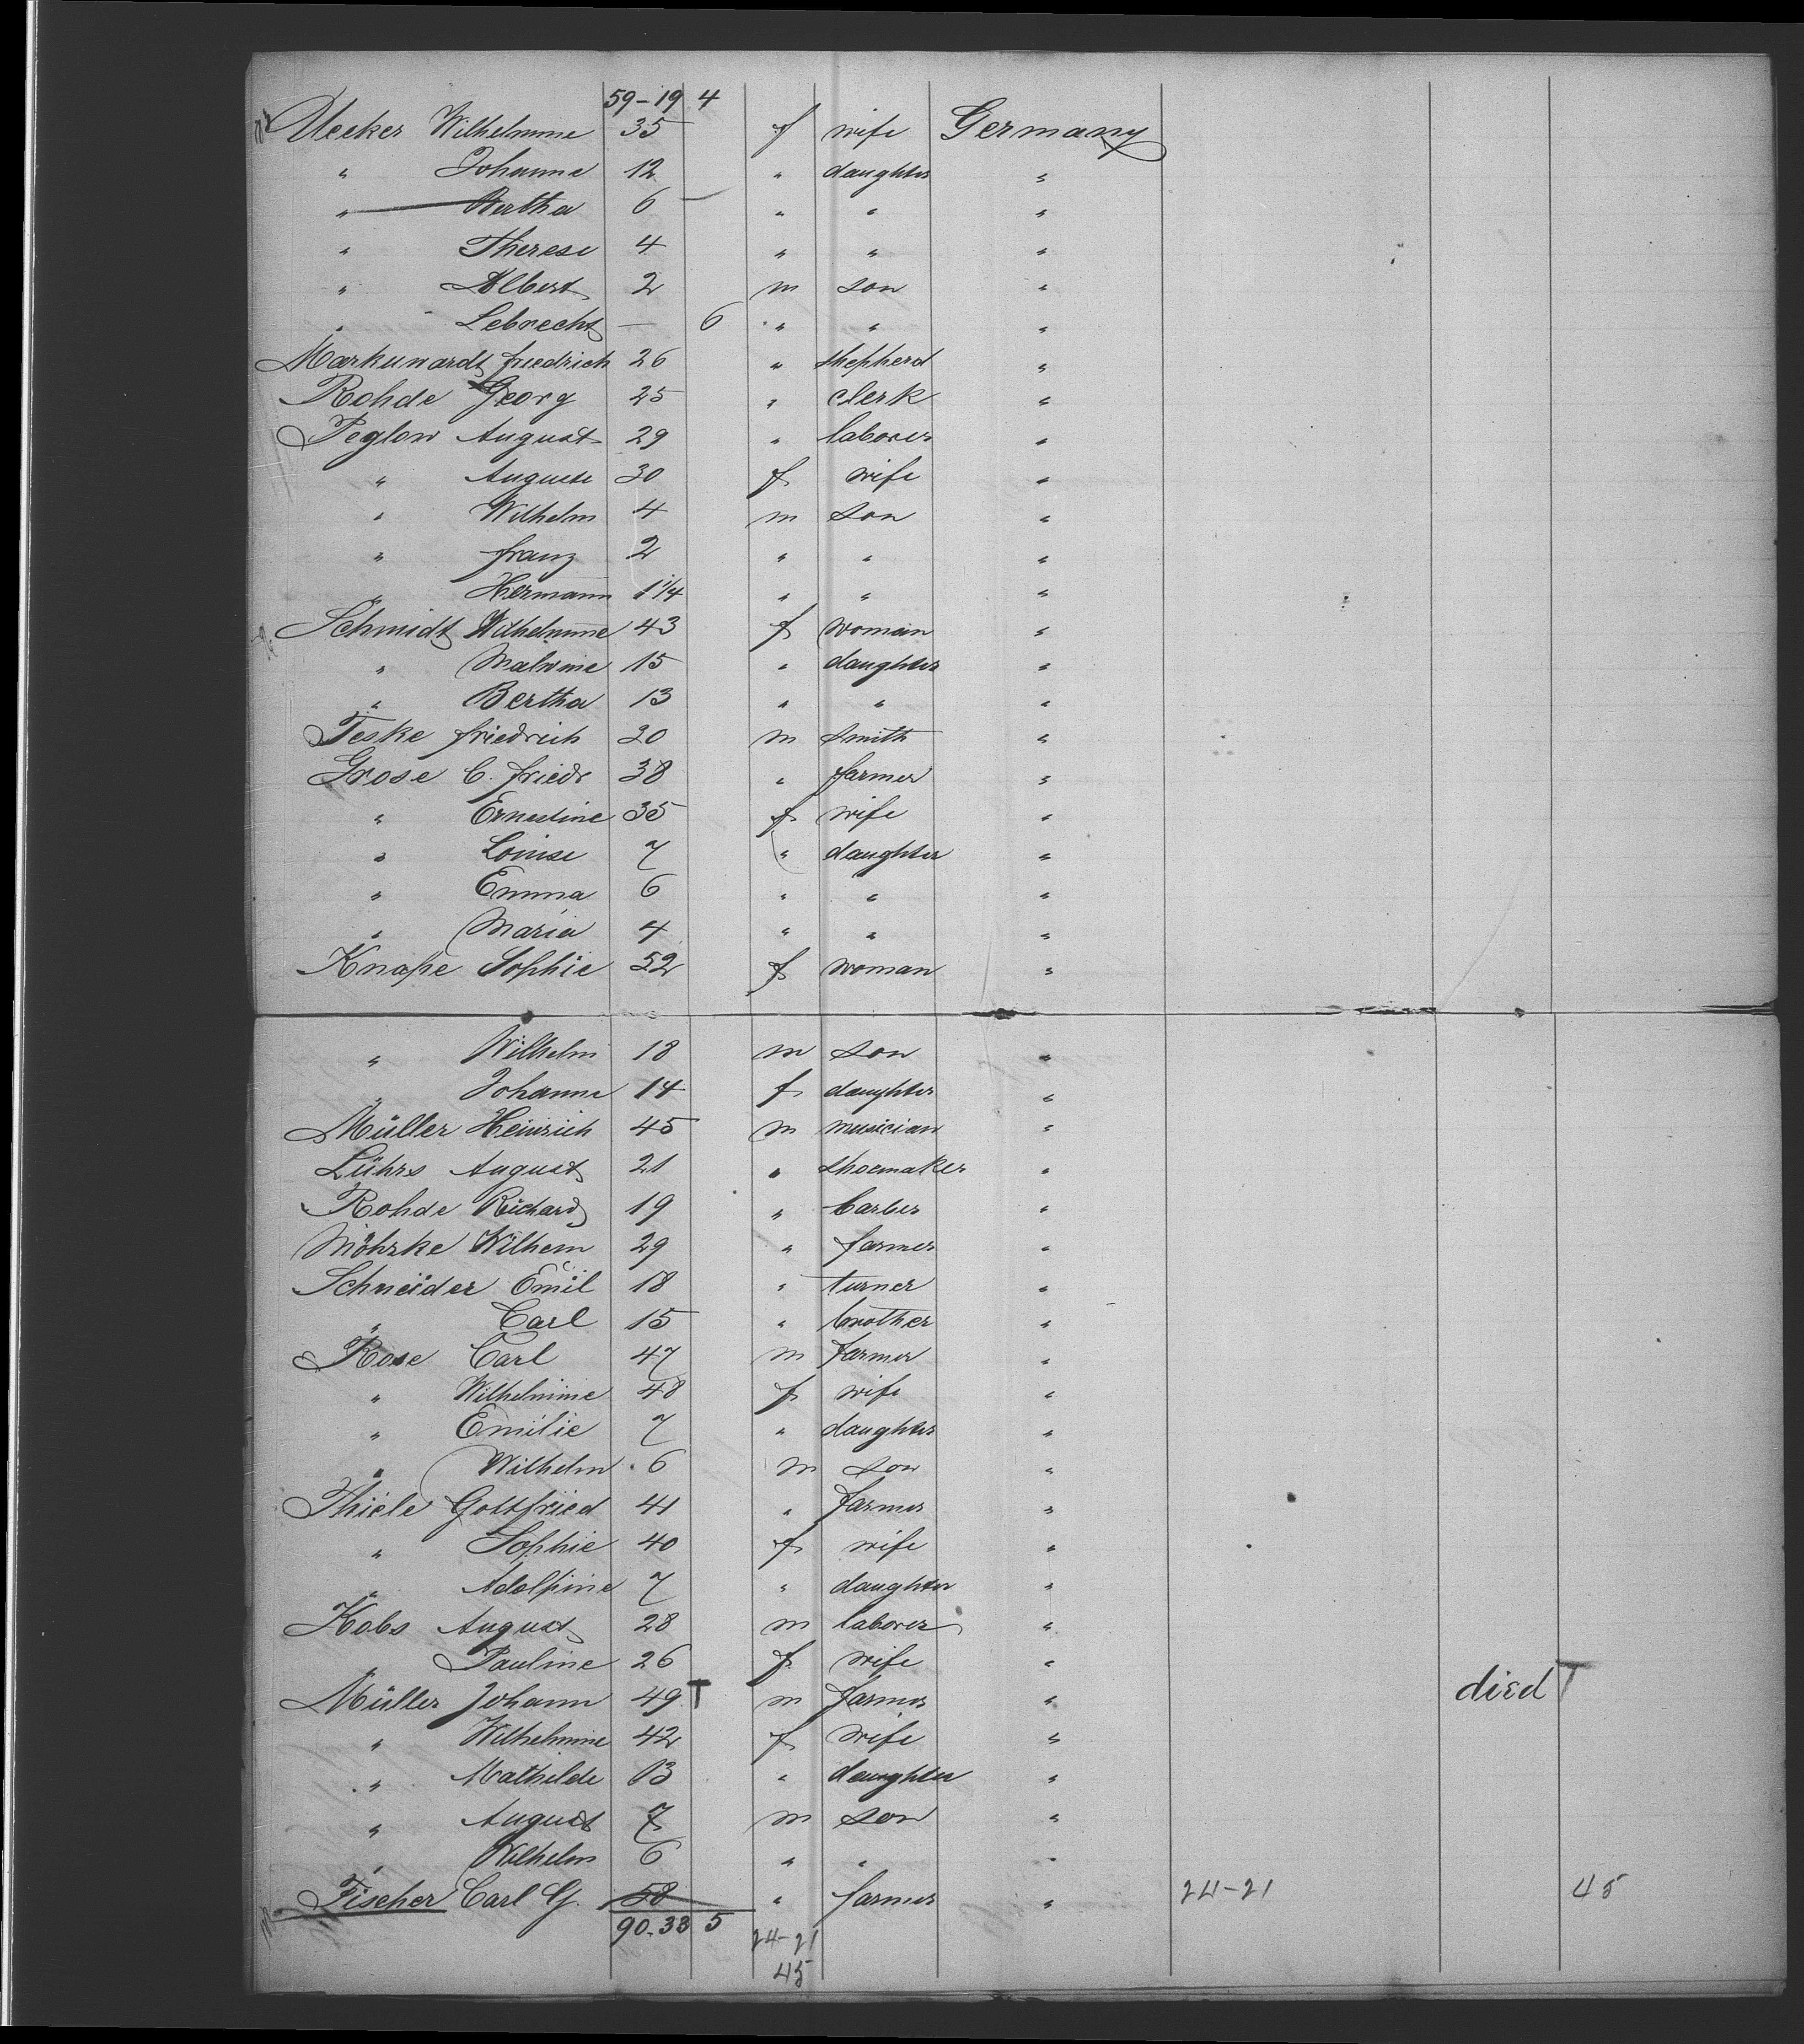 59-19 4
Uecker Wilhelmine 35 f wife Germany
" Johanne 12 " daughter "
" Bertha 6 " " "
" Therese 4 " " "
" Albert 2 m son "
" Lebrecht — 6 " " "
Markuwardt friedrich 26 " shepherd "
Rohde Georg 25 " clerk "
Peglow August 29 " laborer "
" Auguste 30 f wife "
" Wilhelm 4 m son "
" franz 2 " " "
" Hermann 1 1/4 " " "
Schmidt Wilhelmine 43 f woman "
" Malwine 15 " daughter "
" Bertha 13 " " "
Teske friedrich 20 m smith "
Grose C. friedr 38 " farmer "
" Ernestine 35 f wife "
" Louise 7 " daughter "
" Emma 6 " " "
" Maria 4 " " "
Knape Sophie 52 f woman "
" Wilhelm 18 m son "
" Johanne 14 f daughter "
Müller Heinrich 45 m musician "
Lührs August 21 " shoemaker "
Rohde Richard 19 " barber "
Möhrke Wilhem 29 " farmer "
Schneider Emil 18 " turner "
" Carl 15 " brother "
Rose Carl 47 m farmer "
" Wilhelmine 48 f wife "
" Emilie 7 " daughter "
" Wilhelm 6 m son "
Thiele Gottfried 41 " farmer "
" Sophie 40 f wife "
" Adolfine 7 " daughter "
Kobs August 28 m laborer "
" Pauline 26 f wife "
Müller Johann 49 T m farmer " died T
" Wilhelmine 42 f wife "
" Mathilde 13 " daughter "
" August 7 m son "
" Wilhelm 6 " " "
Fischer Carl G. 58 " farmer " 24-21 45
90.33 5 24-21
45